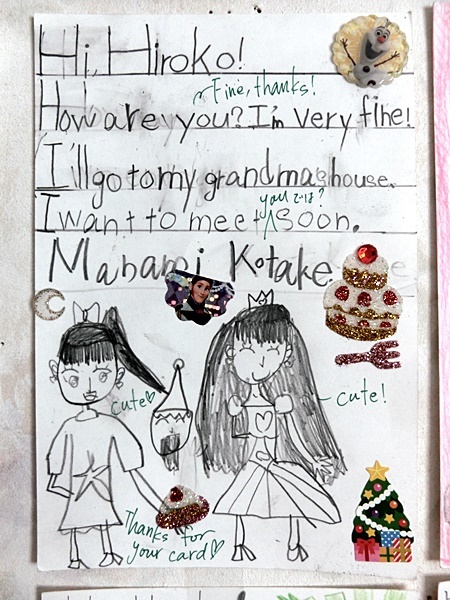 Hi, Hiroko!
Fine, thanks!
How are you? I'm very fine!
I'll go to my grandma's house.
you
I want to meet soon.
Manami Kotake
cute♡
cute!
Thanks for
your card♡